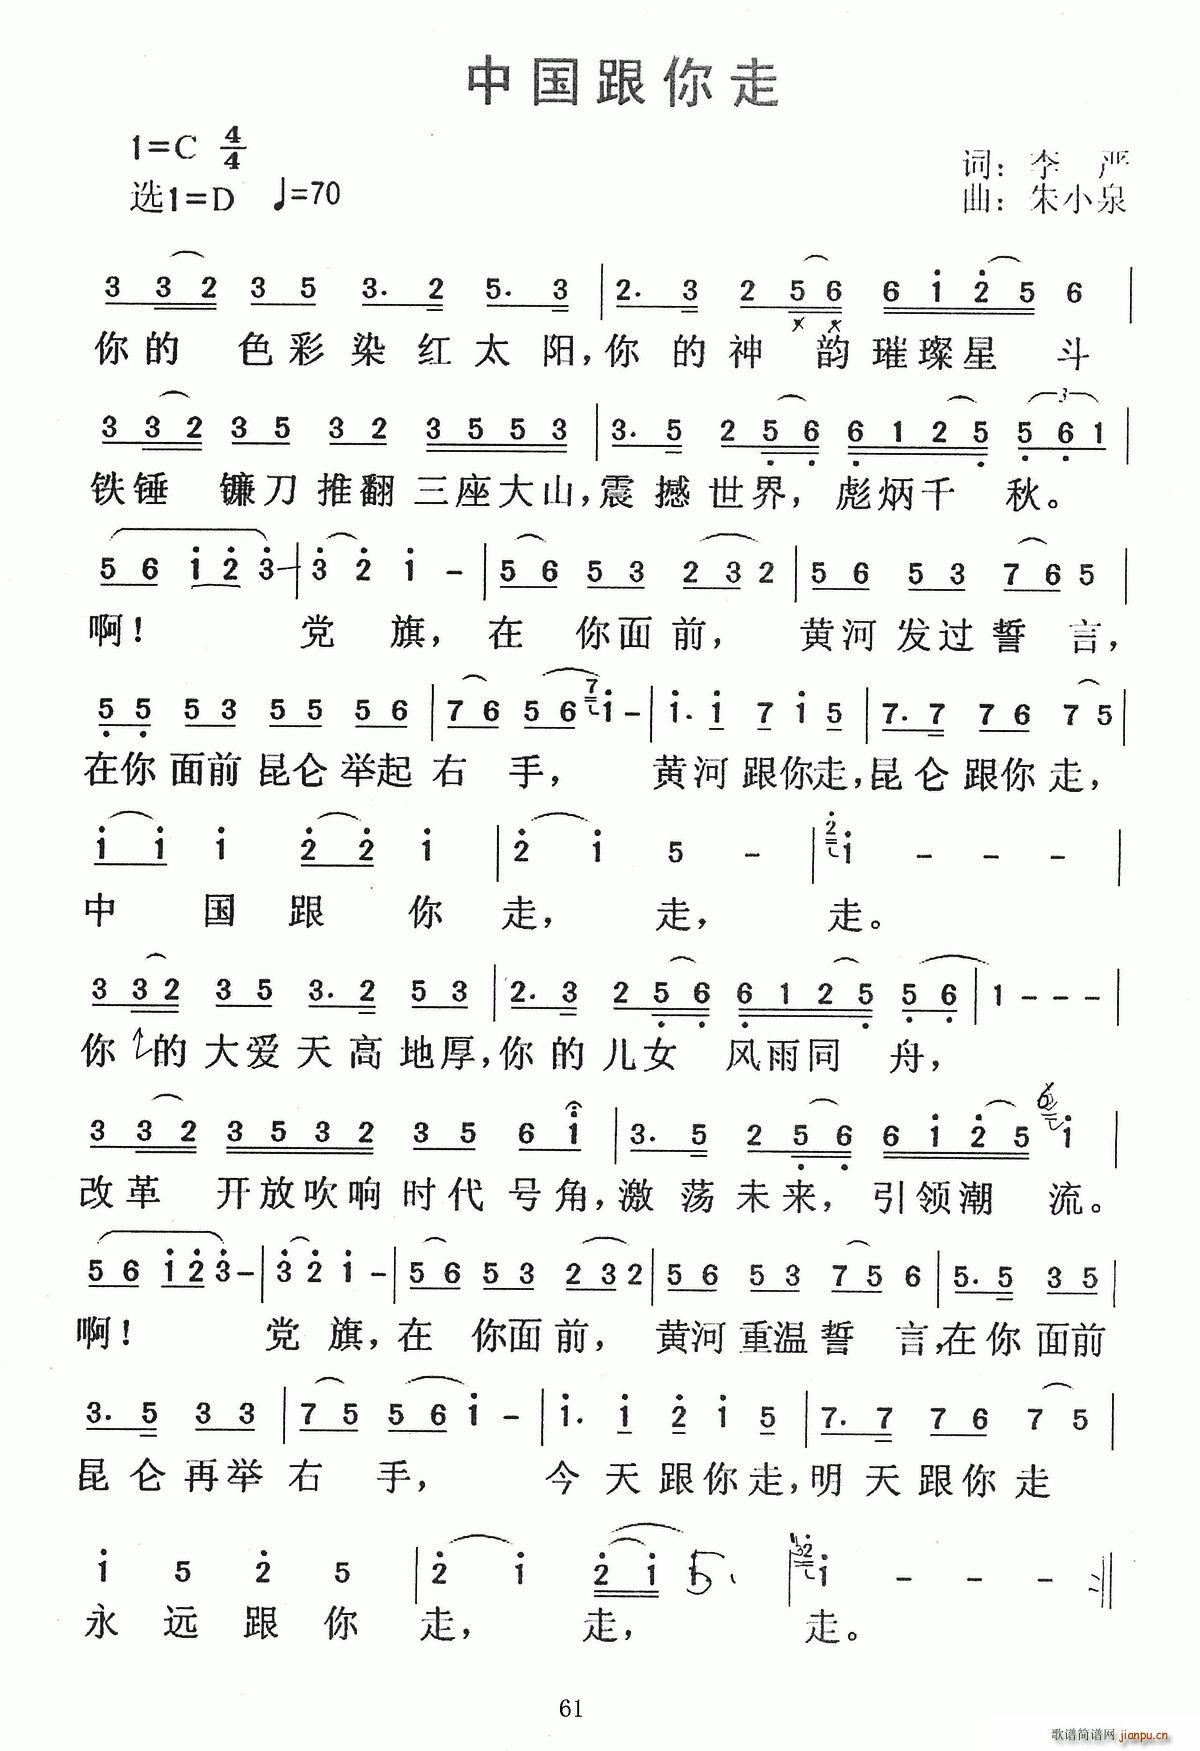 中国跟你走
1=C 4/4
词：李 严
选1=D ♩=70
曲：朱小泉
3 3 2 3 5 3. 2 5. 3 | 2. 3 2 5 6 6 1 2 5 6 |
你的 色彩染红太阳，你的神 韵璀璨星 斗
3 3 2 3 5 3 2 3 5 5 3 | 3. 5 2 5 6 6 1 2 5 5 6 1 |
铁锤 镰刀推翻三座大山，震撼世界，彪炳千 秋。
5 6 1 2 3 – | 3 2 1 – | 5 6 5 3 2 3 2 | 5 6 5 3 7 6 5 |
啊！ 党 旗，在 你面前，黄河发过誓 言，
5 5 5 3 5 5 5 6 | 7 6 5 6 7 1 – | 1. 1 7 1 5 | 7. 7 7 6 7 5 |
在你面前昆仑举起右 手， 黄河跟你走，昆仑跟你走，
1 1 1 2 2 1 | 2 1 5 – | 2 1 – – – |
中 国 跟 你 走， 走， 走。
3 3 2 3 5 3. 2 5 3 | 2. 3 2 5 6 6 1 2 5 5 6 | 1 – – – |
你 的大爱天高地厚，你的儿女 风雨同 舟，
3 3 2 3 5 3 2 3 5 6 1 | 3. 5 2 5 6 6 1 2 5 6 1 |
改革 开放吹响时代号角，激荡未来，引领潮 流。
5 6 1 2 3 – | 3 2 1 – | 5 6 5 3 2 3 2 | 5 6 5 3 7 5 6 | 5. 5 3 5 |
啊！ 党 旗，在 你面前，黄河重温誓 言，在你面前
3. 5 3 3 | 7 5 5 6 1 – | 1. 1 2 1 5 | 7. 7 7 6 7 5 |
昆仑再举右 手， 今天跟你走，明天跟你走
1 5 2 5 | 2 1 2 1 5 | 3 2 1 – – – :||
永 远 跟 你 走， 走， 走。
61
歌谱简谱网 jianpu.cn